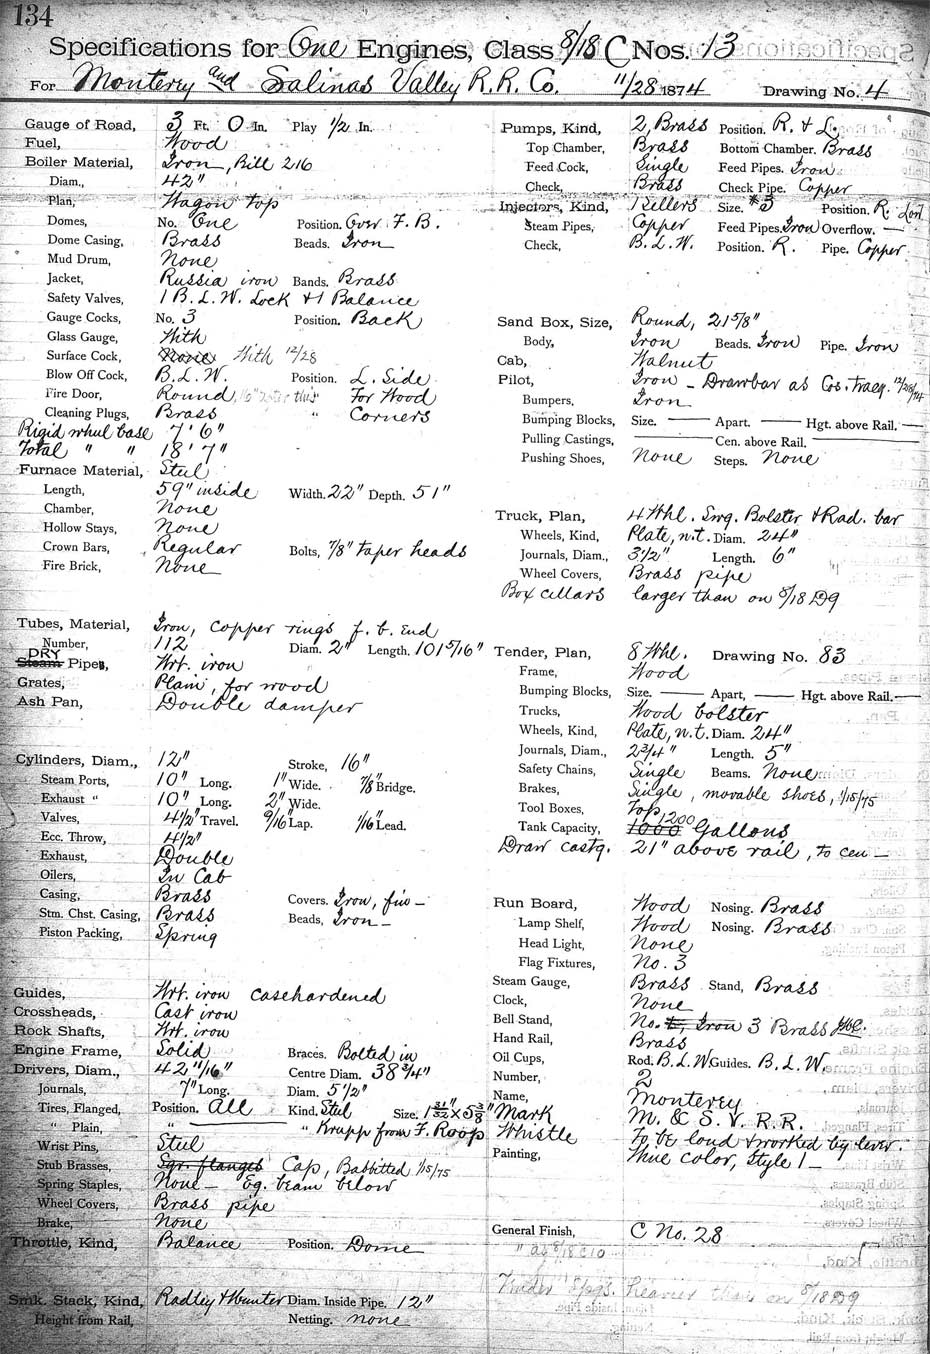 134
Specifications for One Engines, Class 8/18 C Nos. 13
For Monterey and Salinas Valley R.R. Co. 11/28 1874 Drawing No. 4
Gauge of Road, 3 Ft. 0 In. Play 1/2 In.
Fuel, Wood
Boiler Material, Iron, Bill 216
Diam., 42"
Plan, Wagon top
Domes, No. One Position. Over F. B.
Dome Casing, Brass Beads. Iron
Mud Drum, None
Jacket, Russia iron Bands. Brass
Safety Valves, 1 B. L. W. Lock & 1 Balance
Gauge Cocks, No. 3 Position. Back
Glass Gauge, With
Surface Cock, None With 12/28
Blow Off Cock, B. L. W. Position. L. Side
Fire Door, Round, 16" this For Wood
Cleaning Plugs, Brass " Corners
Rigid wheel base 7' 6"
Total " " 18' 7"
Furnace Material, Steel
Length, 59" inside Width. 22" Depth. 51"
Chamber, None
Hollow Stays, None
Crown Bars, Regular Bolts, 7/8" taper heads
Fire Brick, None
Tubes, Material, Iron, copper rings f. b. end
Number, 112 Diam. 2" Length. 101 5/16"
DRY
Steam Pipes, Wrt. iron
Grates, Plain, for wood
Ash Pan, Double damper
Cylinders, Diam., 12" Stroke, 16"
Steam Ports, 10" Long. 1" Wide. 7/8 Bridge.
Exhaust " 10" Long. 2" Wide.
Valves, 4 1/2" Travel. 9/16" Lap. 1/16" Lead.
Ecc. Throw, 4 1/2"
Exhaust, Double
Oilers, In Cab
Casing, Brass Covers. Iron, fin —
Stm. Chst. Casing, Brass Beads, Iron —
Piston Packing, Spring
Guides, Wrt. iron casehardened
Crossheads, Cast iron
Rock Shafts, Wrt. iron
Engine Frame, Solid Braces. Bolted in
Drivers, Diam., 42 11/16" Centre Diam. 38 3/4"
Journals, 7" Long. Diam. 5 1/2"
Tires, Flanged, Position. All Kind. Steel Size. 1 31/32 x 5 3/8"
" Plain, " — " Krupp from F. Roop
Wrist Pins, Steel
Stub Brasses, Sqr. flanges Cap, Babbitted 1/15/75
Spring Staples, None — Eq. beam below
Wheel Covers, Brass pipe
Brake, None
Throttle, Kind, Balance Position. Dome
Smk. Stack, Kind, Radley & Hunter Diam. Inside Pipe. 12"
Height from Rail, Netting. none
Pumps, Kind, 2, Brass Position. R. & L.
Top Chamber, Brass Bottom Chamber. Brass
Feed Cock, Single Feed Pipes. Iron
Check, Brass Check Pipe. Copper
Injectors, Kind, 1 Sellers Size. #3 Position. R.
Steam Pipes, Copper Feed Pipes. Iron Overflow. —
Check, B. L. W. Position. R. Pipe. Copper
Sand Box, Size, Round, 21 5/8"
Body, Iron Beads. Iron Pipe. Iron
Cab, Walnut
Pilot, Iron — Drawbar as Cos. tracg. 12/28/74
Bumpers, Iron
Bumping Blocks, Size. — Apart. — Hgt. above Rail. —
Pulling Castings, — Cen. above Rail. —
Pushing Shoes, None Steps. None
Truck, Plan, 4 Whl. Swg. Bolster & Rad. bar
Wheels, Kind, Plate, n.t. Diam. 24"
Journals, Diam., 3 1/2" Length. 6"
Wheel Covers, Brass pipe
Box cellars larger than on 8/18 D9
Tender, Plan, 8 Whl. Drawing No. 83
Frame, Wood
Bumping Blocks, Size. — Apart, — Hgt. above Rail. —
Trucks, Wood bolster
Wheels, Kind, Plate, n.t. Diam. 24"
Journals, Diam., 2 3/4" Length. 5"
Safety Chains, Single Beams. None
Brakes, Single, movable shoes, 1/15/75
Tool Boxes, Top
Tank Capacity, 1000 1200 Gallons
Draw castg. 21" above rail, to cen —
Run Board, Wood Nosing. Brass
Lamp Shelf, Wood Nosing. Brass
Head Light, None
Flag Fixtures, No. 3
Steam Gauge, Brass Stand, Brass
Clock, None
Bell Stand, No. Iron 3 Brass
Hand Rail, Brass
Oil Cups, Rod. B. L. W. Guides. B. L. W.
Number, 2
Name, Monterey
Mark M. & S. V. R. R.
Whistle To be loud & worked by lever.
Painting, color, Style 1 —
General Finish, C No. 28
" as 8/18 C 10
Tender Spgs. heavier than on 8/18 D9